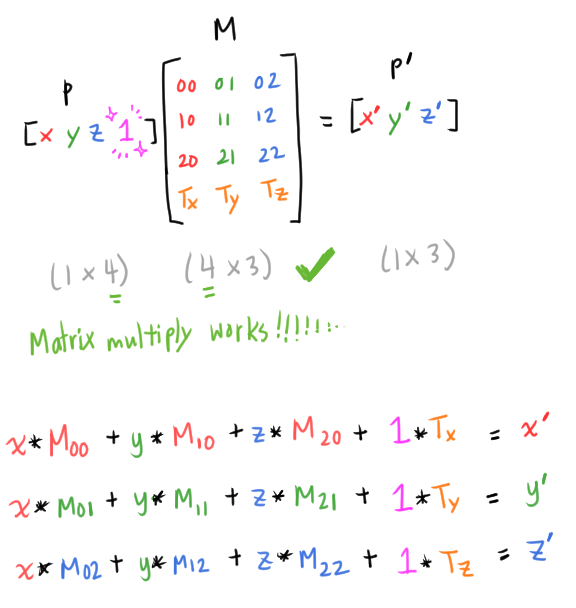 M
P P'
[x y z 1] [00 01 02 = [x' y' z']
10 11 12
20 21 22
Tx Ty Tz]
(1 x 4) (4 x 3) ✓ (1 x 3)
Matrix multiply works!!!!!!...
x* M00 + y* M10 + z* M20 + 1*Tx = x'
x* M01 + y* M11 + z* M21 + 1*Ty = y'
x* M02 + y* M12 + z* M22 + 1* Tz = z'